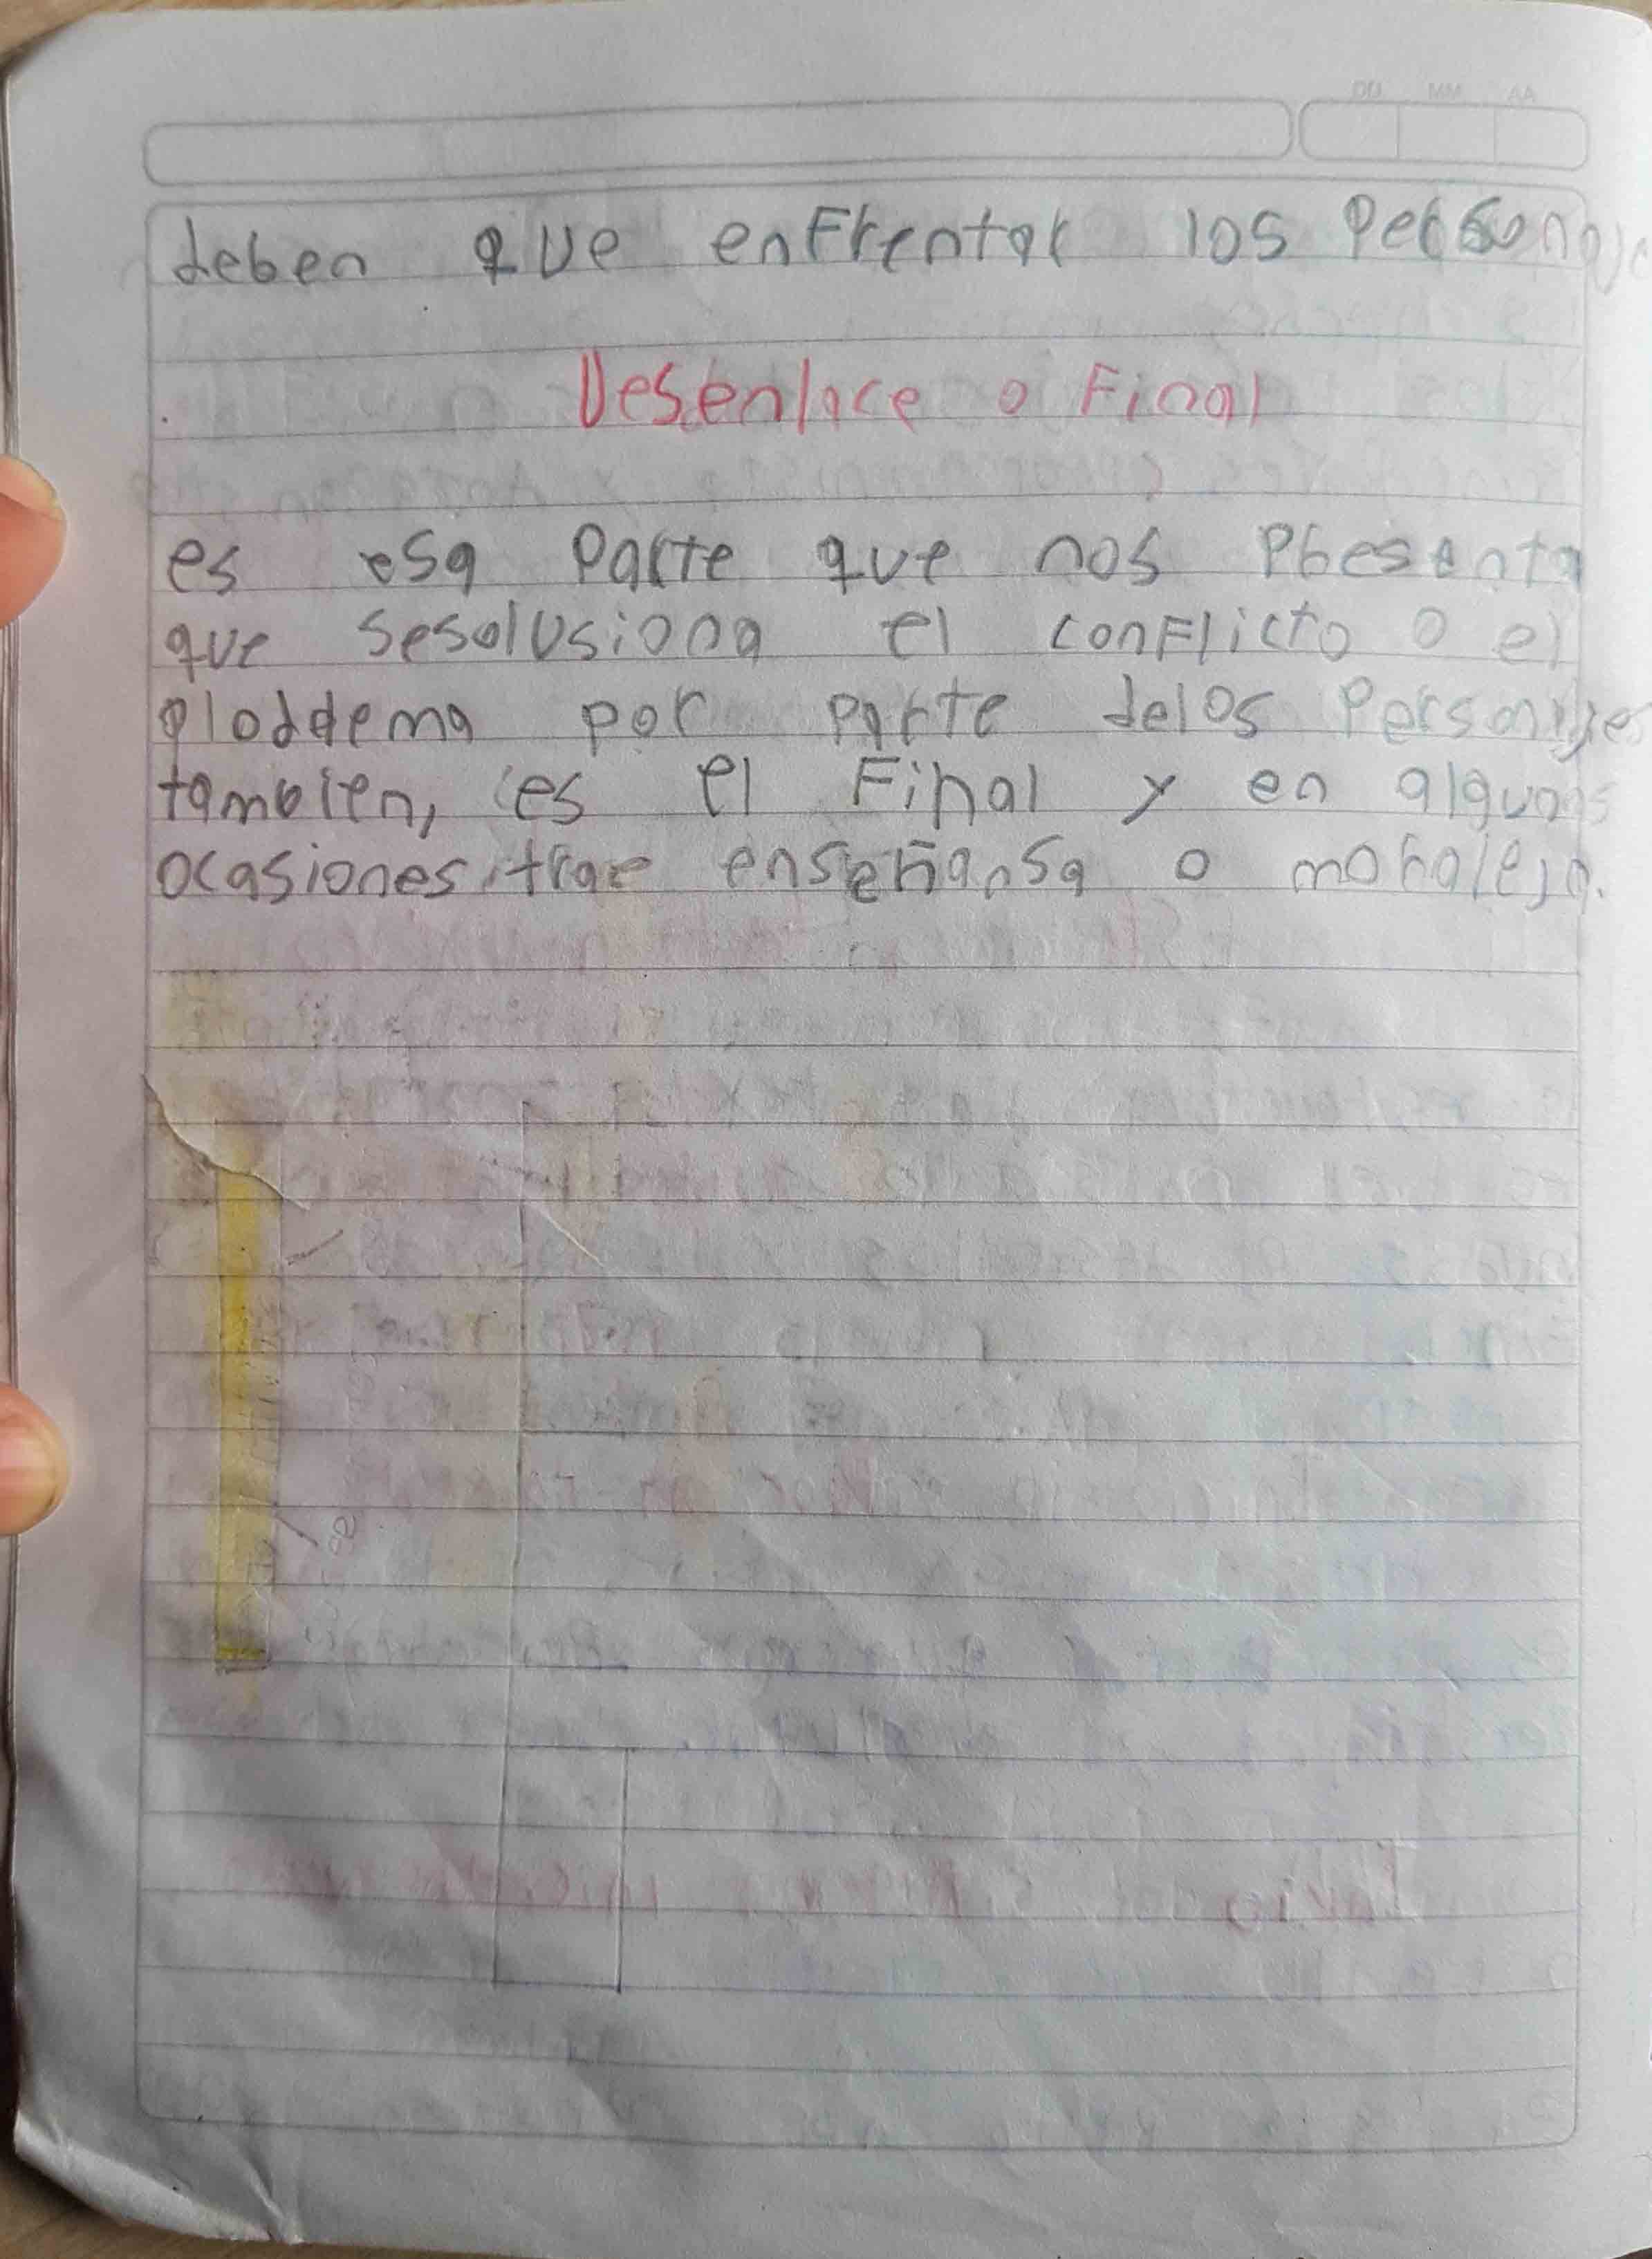 DD MM AA
deben que enfrentar los personaje
Desenlace o Final
es esa parte que nos presenta
que sesolusiona el conflicto o el
ploddema por parte delos Personajes
tambien, es el Final y en algunas
ocasiones, trae enseñansa o moraleja.